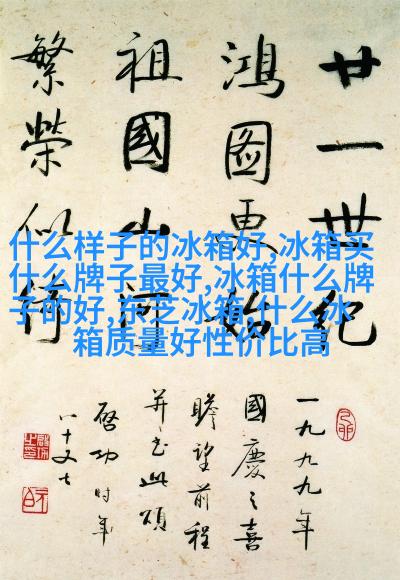 廿一世纪
鸿图更始
祖國山河
繁榮似
什么样子的冰箱好,冰箱买
什么牌子最好,冰箱什么牌
子的好,东芝冰箱,什么冰
箱质量好性价比高
一九九九年
國慶之喜
瞻望前程
并书此颂
启功时年
八十又七